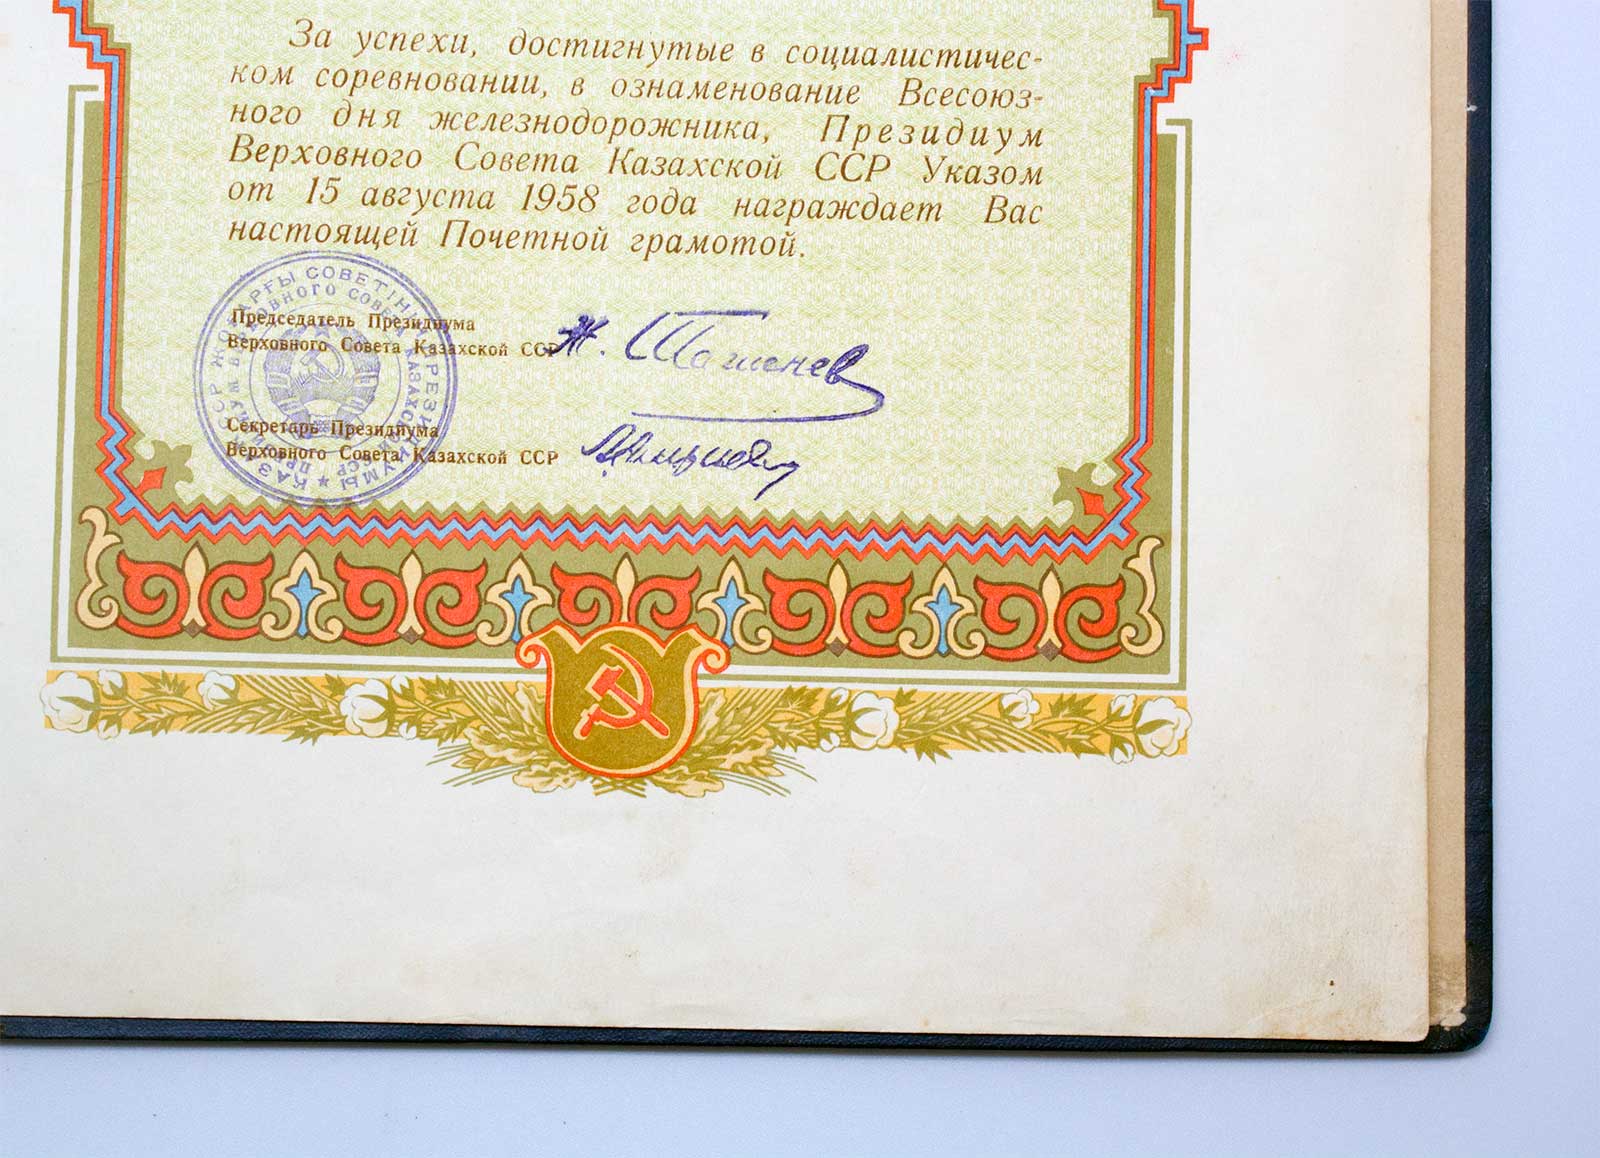 За успехи, достигнутые в социалистичес-
ком соревновании, в ознаменование Всесоюз-
ного дня железнодорожника, Президиум
Верховного Совета Казахской ССР Указом
от 15 августа 1958 года награждает Вас
настоящей Почетной грамотой.
Председатель Президиума
Верховного Совета Казахской ССР Ж. Ташенев
Секретарь Президиума
Верховного Совета Казахской ССР